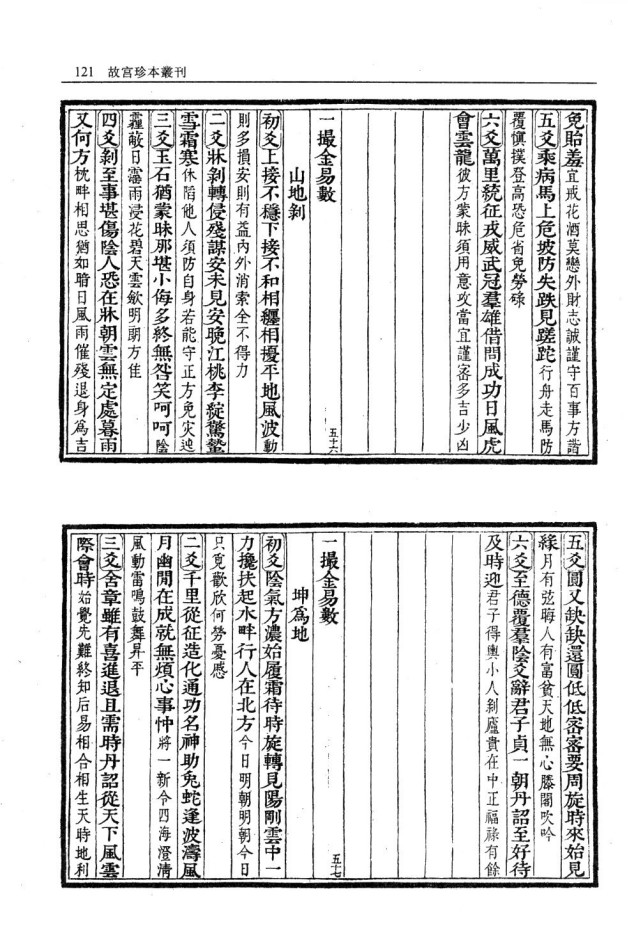 121 故宮珍本叢刊
免貽羞宜戒花酒莫戀外財志誠謹守百事方諧
五爻乘病馬上危坡防失跌見蹉跎行舟走馬防
覆慎撲登高恐危尚免勞碌
六爻萬里統征戎威武冠羣雄借問成功日風虎
會雲龍彼方蒙昧須用意攻當宜謹密多吉少凶
一撮金易數
五十六
山地剝
初爻上接不穩下接不和相纏相擾平地風波動
則多損安則有益內外消索全不得力
二爻牀剝轉侵殘謀安未見安晚江桃李綻驚蟄
雪霜寒休陷他人須防自身若能守正方免災迍
三爻玉石猶蒙昧那堪小侮多終無咎笑呵呵陰
霾蔽日靄雨浸花碧天雲斂明朗方佳
四爻剝至事堪傷陰人恐在牀朝雲無定處暮雨
又何方枕畔相思猶如暗日風雨催殘退身爲吉
五爻圓又缺缺還圓低低密密要周旋時來始見
緣月有弦晦人有富貧天地無心滕閣吹吟
六爻至德覆羣陰爻辭君子貞一朝丹詔至好待
及時迎君子得輿小人剝廬貴在中正福祿有餘
一撮金易數
五十七
坤爲地
初爻陰氣方濃始履霜待時旋轉見陽剛雲中一
力攙扶起水畔行人在北方今日明朝明朝今日
只覓歡欣何勞憂慼
二爻千里從征造化通功名神助兔蛇逢波濤風
月幽閒在成就無煩心事忡將一新令四海澄清
風動雷鳴鼓舞昇平
三爻舍章雖有喜進退且需時丹詔從天下風雲
際會時始覺先難終知后易相合相生天時地利